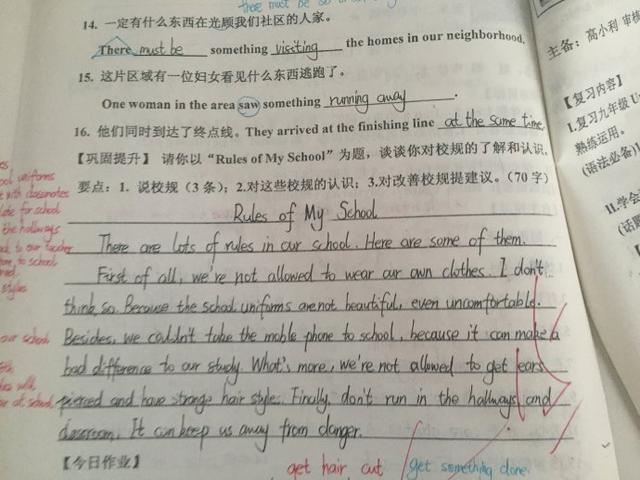 14. 一定有什么东西在光顾我们社区的人家。
There must be something visiting the homes in our neighborhood.
15. 这片区域有一位妇女看见什么东西逃跑了。
One woman in the area saw something running away.
16. 他们同时到达了终点线。They arrived at the finishing line at the same time.
【巩固提升】 请你以“Rules of My School”为题，谈谈你对校规的了解和认识。
要点：1. 说校规（3 条）；2.对这些校规的认识；3.对改善校规提建议。（70 字）
Rules of My School
There are lots of rules in our school. Here are some of them.
First of all, we're not allowed to wear our own clothes. I don't
think so. Because the school uniforms are not beautiful, even uncomfortable.
Besides, we couldn't take the moble phone to school, because it can make a
bad difference to our study. What's more, we're not allowed to get ears
pierced and have strange hair styles. Finally, don't run in the hallways and
classroom. It can keep us away from danger.
【今日作业】
get hair cut
get something done.
ool uniforms
t with classmates
late for school
the hallways
to our teacher
to school
styles
our school
with
at school
主备：高小利 审核
【复习内容】
1.复习九年级 U
熟练运用。
(语法必备)
II.学会
(话题